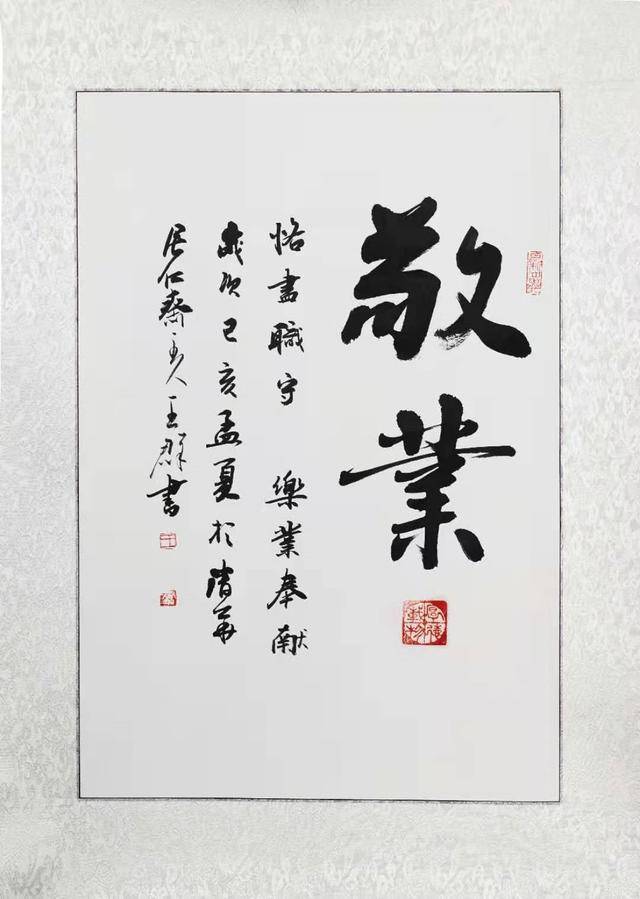 敬業
恪盡職守 樂業奉献
歲次己亥孟夏於清華
居仁齋主人王群書
厚德載物